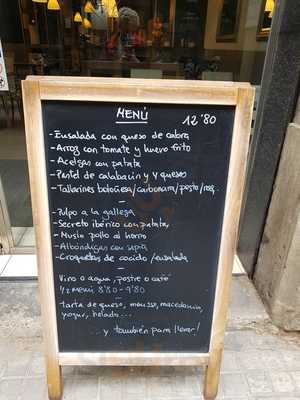 MENÚ
12'80
- Ensalada con queso de cabra
- Arroz con tomate y huevo frito
- Acelgas con patata
- Pastel de calabacín y 4 quesos
- Tallarines boloñesa/carbonara/pesto/roq.
-
- Pulpo a la gallega
- Secreto ibérico con patatas
- Muslo pollo al horno
- Albóndigas con sepia
- Croquetas de cocido/ensalada
-
Vino o agua, postre o café
1/2 menú 8'80 - 9'80
Tarta de queso, mousse, macedonia,
yogur, helado...
... y también para llevar!